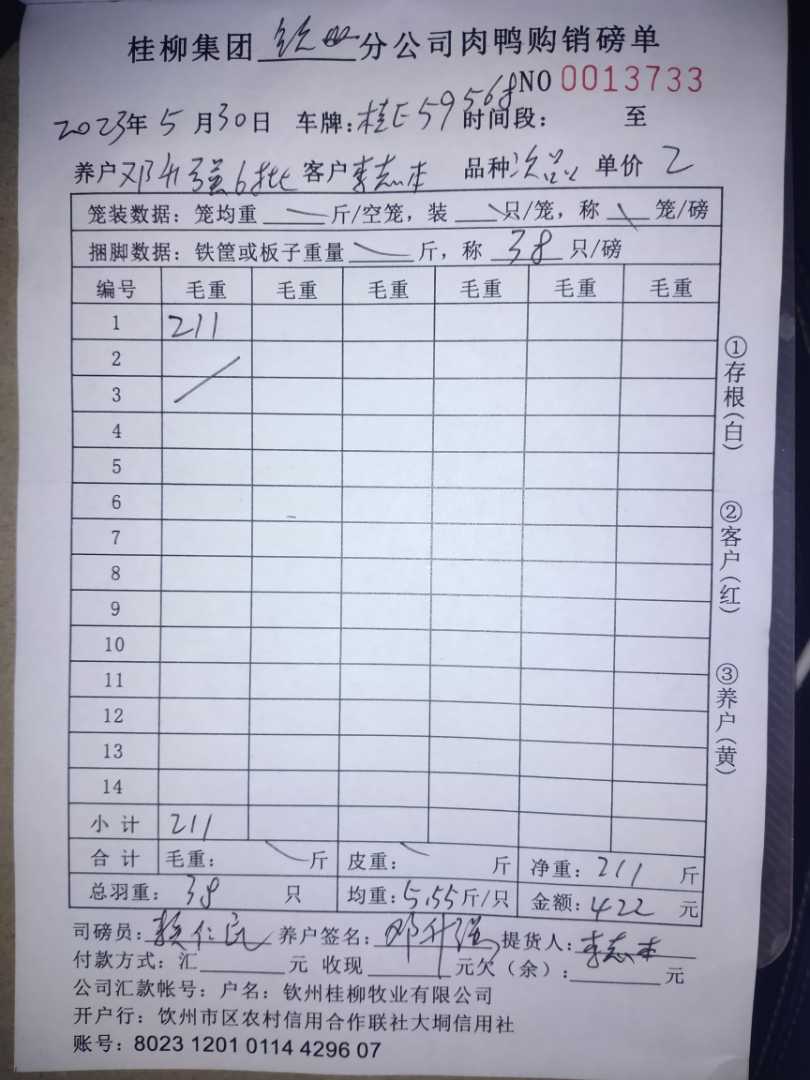 桂柳集团 钦州 分公司肉鸭购销磅单
NO 0013733
2023年 5 月30日 车牌:桂E59568 时间段: 至
养户 邓升强6批 客户 李志本 品种 次品 单价 2
笼装数据: 笼均重 斤/空笼, 装 只/笼, 称 笼/磅
捆脚数据: 铁筐或板子重量 斤, 称 38 只/磅
编号 毛重 毛重 毛重 毛重 毛重 毛重
1 211
2
3
4
5
6
7
8
9
10
11
12
13
14
小计 211
合计 毛重: 斤 皮重: 斤 净重: 211 斤
总羽重: 38 只 均重: 5.55斤/只 金额: 422 元
司磅员: 养户签名: 邓升强 提货人: 李志本
付款方式: 汇 元 收现 元欠(余): 元
公司汇款帐号: 户名: 钦州桂柳牧业有限公司
开户行: 钦州市区农村信用合作联社大垌信用社
账号: 8023 1201 0114 4296 07
①存根(白)
②客户(红)
③养户(黄)